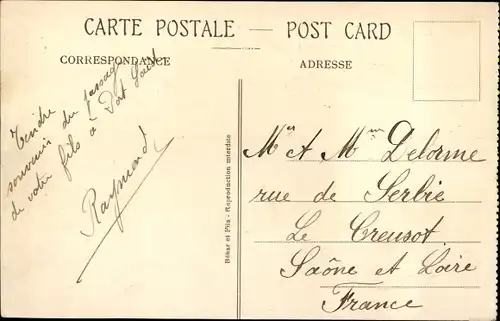 CARTE POSTALE — POST CARD
CORRESPONDANCE
ADRESSE
Tendre
souvenir du passage
de votre fils à Port Saïd
Raymond
Béhar et Fils - Reproduction interdite
Mr & Mme Delorme
rue de Serbie
Le Creusot
Saône et Loire
France